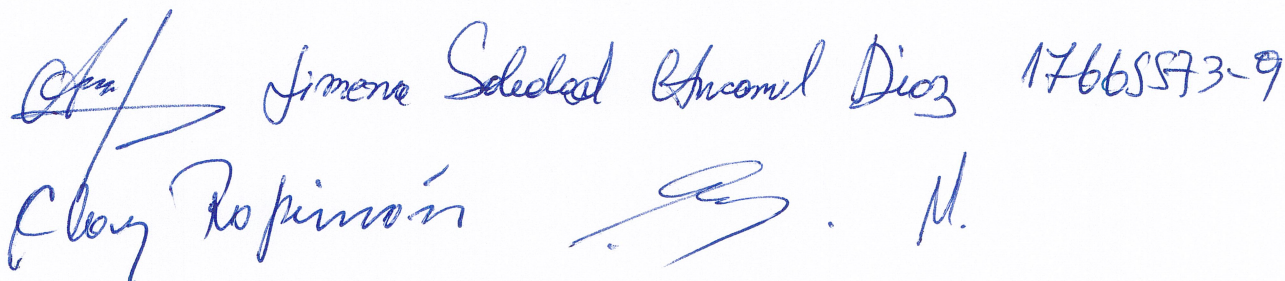 Jimena Soledad Ancamil Diaz 17665573-9
Clay Ropimón M.